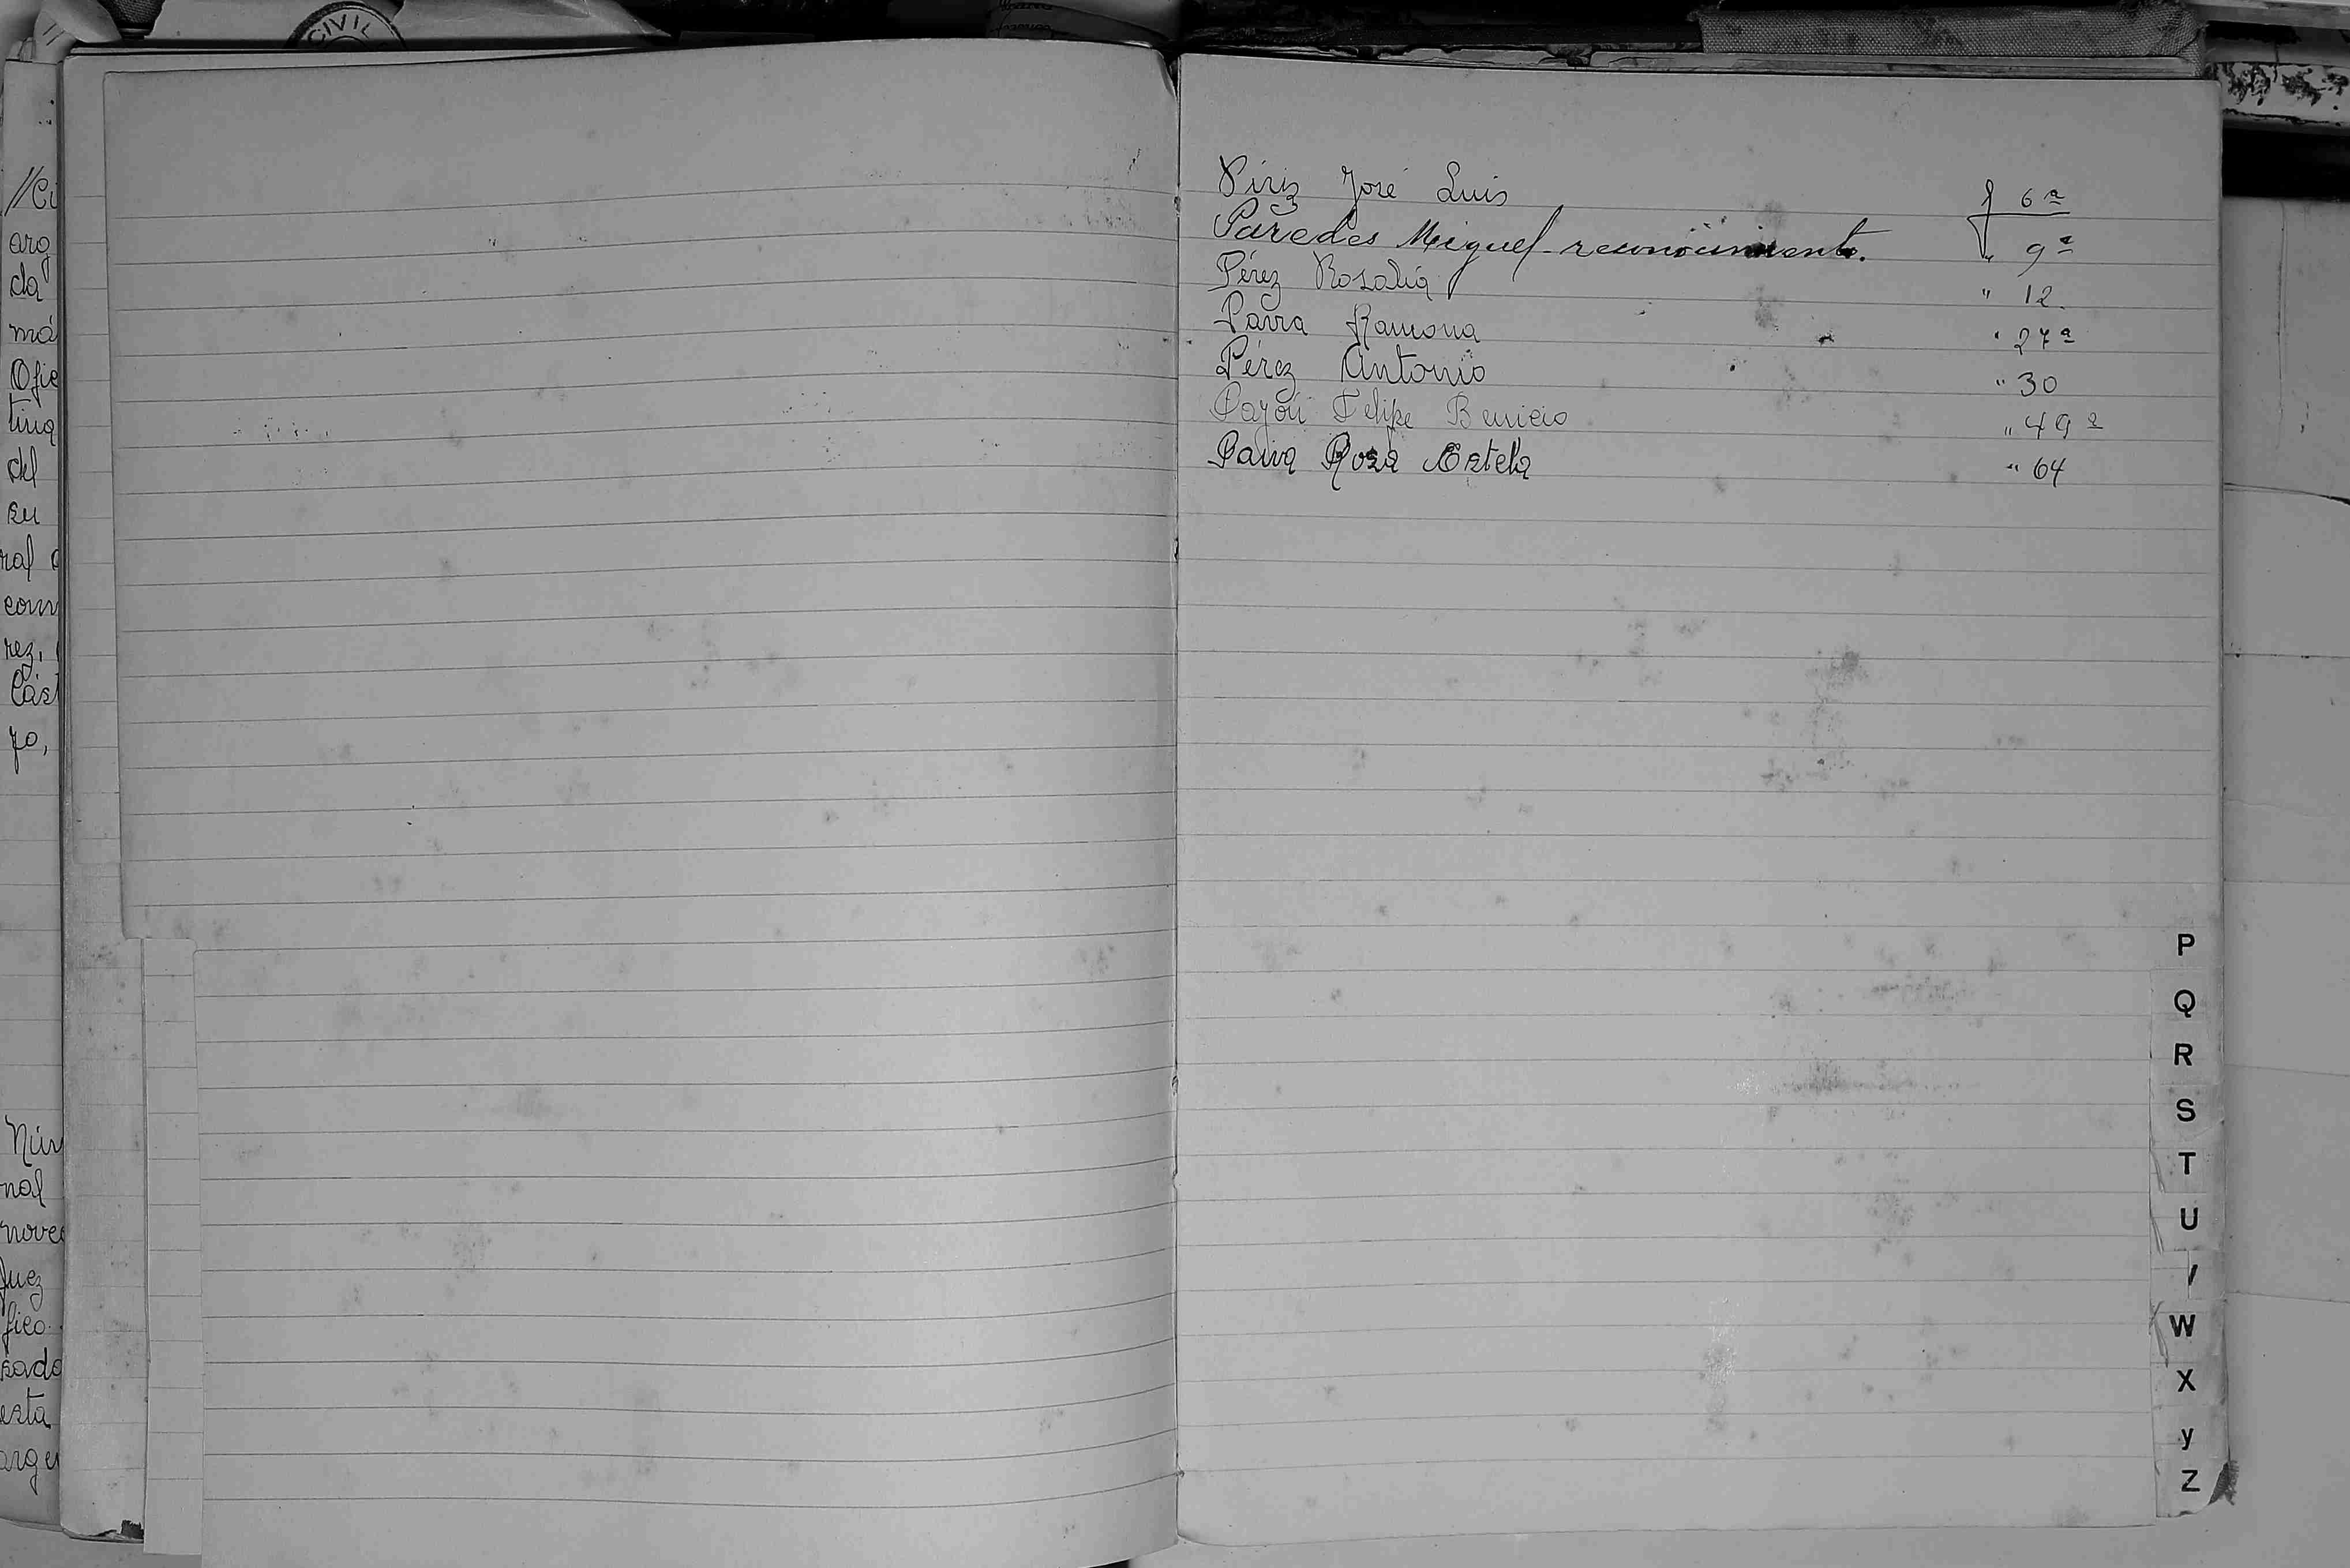 CIVIL
//Ci
arg
da
má
Ofic
tina
del
su
ral
com
rez,
Cast
yo,
Núm
nal
nove
Juez
fico
sado
esta
arge
Piriz José Luis f 6ª
Paredes Miguel-reconocimiento. " 9ª
Pérez Rosalia " 12.
Parra Ramona " 27ª
Pérez Antonio " 30
Payón Felipe Benicio " 49ª
Paiva Rosa Estela " 64
P
Q
R
S
T
U
V
W
X
y
Z